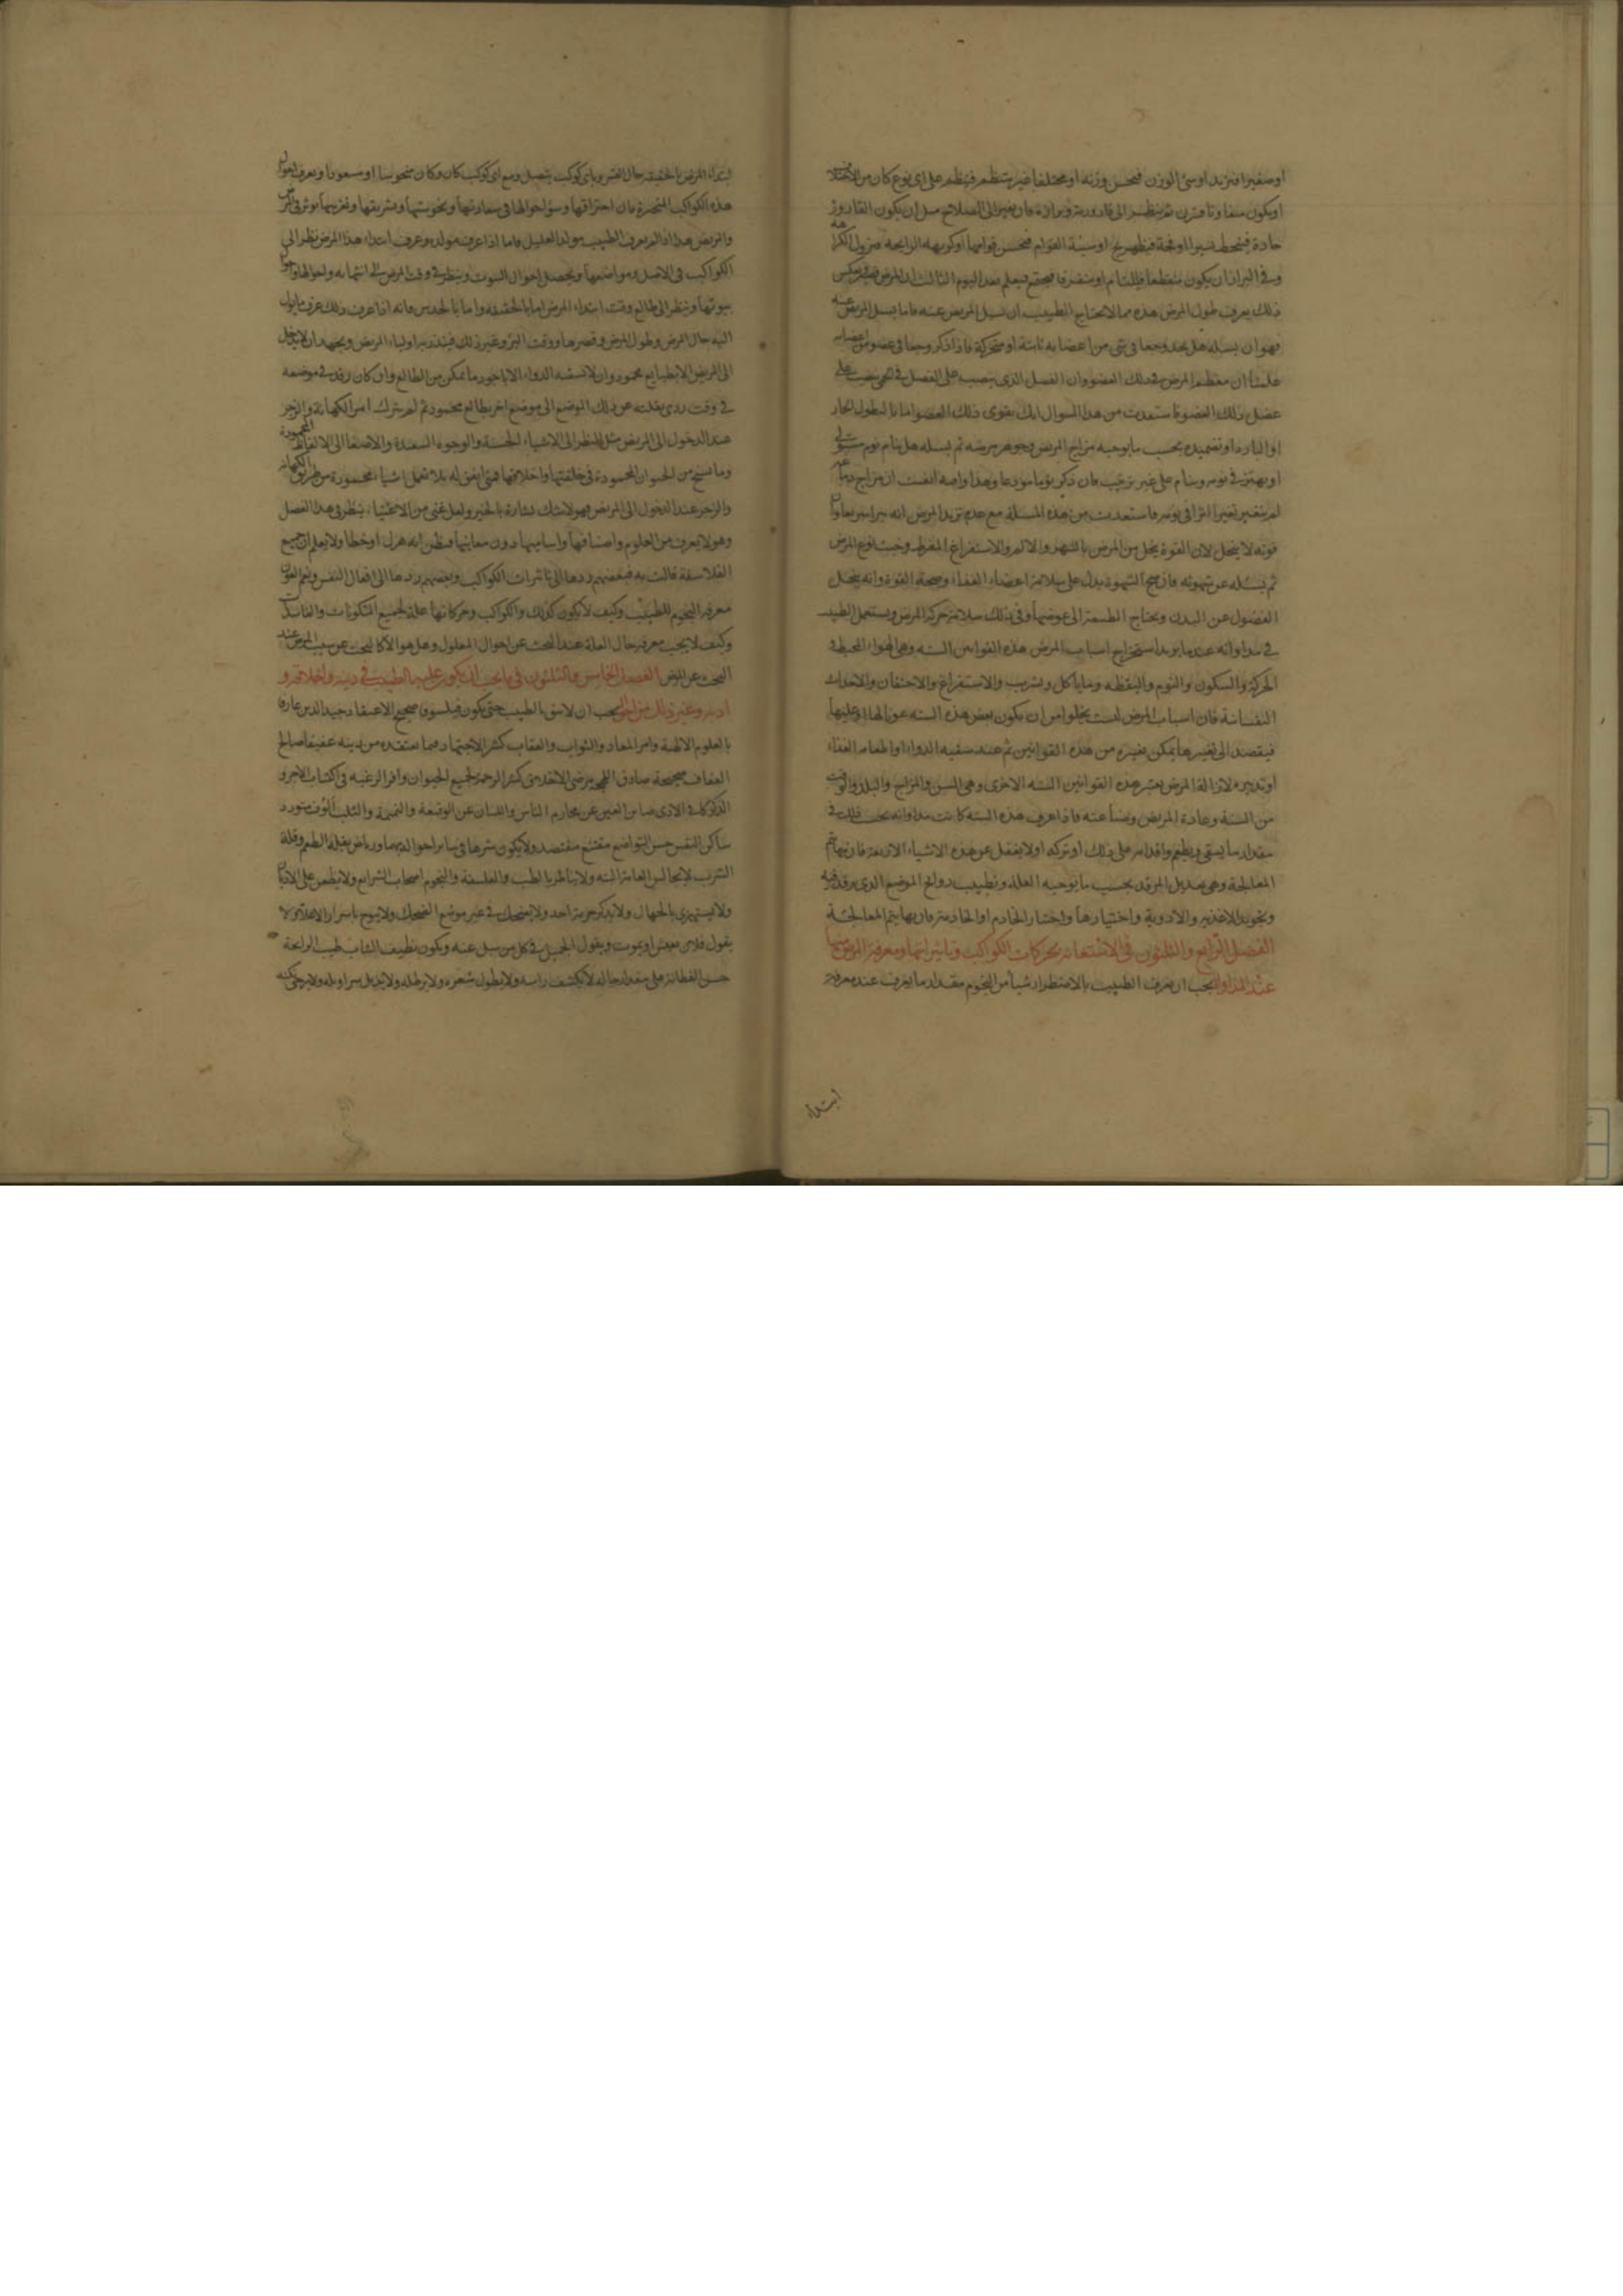 او صغيرا فيزيد او سئ الوزن فيحسن وزنه او مختلفا غير منتظم فينظم على اى نوع كان من الاختلا
او يكون متفاوتا فيقترن ثم ينظر الى قارورته وبرازه فان تغيرا الى الصلاح مثل ان يكون القارورة
حادة فينحط او فجة فيظهر نضج او سيئة القوام فيحسن قوامها او كريهة الرائحة فيزول الكراهه
وفى البراز ان يكون منقطعا فيلتئام او متفرقا فيجتمع فيعلم بعد اليوم الثالث ان المرض قصير وبعكس
ذلك يعرف طول المرض هذه مما لا يحتاج الطبيب ان يسئل المريض عنه فاما يسئل المريض عنه
فهو ان يسئله هل يجد وجعا فى شئ من اعضائه ثابتة او متحركة فاذا ذكر وجعا فى عضو من اعضائه
علمنا ان معظم المرض فى ذلك العضو وان الفضل الذى ينصب على المفصل فهى تنصب على
عضل ذلك العضو فاستفدت من هذا السوال انك تقوى ذلك العضو اما بالنطول الحار
او البارد او تضميده بحسب ما يوجبه مزاج المريض وجوهر مرضه ثم يسئله هل ينام نوم مستوفى
او يهتز فى نومه وينام على غير ترتيب فان ذكر نوما مودعا وهدأ واصه الفت ان مزاج دماغه
لم يتغير تغيرا اثر فى نومه فاستفدت من هذه المسئلة مع عدم تزيد المرض انه يبرأ سريعا وان
قوته لا ينحل لان القوة ينحل من المرض بالسهر والالم والاستفراغ المفرط وخبث نوع المرض
ثم يسئله عن شهوته فان صح الشهوة يدل على سلامة اعضاء الغذاء وصحة القوة وانه ينحل
الفضول عن البدن ويحتاج الطبيعة الى عوضها وفى ذلك سلامة حركة المرض ويستعمل الطبيب
فى مداواته عندما يريد استخراج اسباب المرض هذه القوانين الستة وهى الهواء المحيط و
الحركة والسكون والنوم واليقظة وما يأكل ويشرب والاستفراغ والاحتقان والاحداث
النفسانية فان اسباب المرض ليست يخلوا من ان يكون بعض هذه الستة عونا لها او عليها
فيقصد الى تغيير ما يمكن تغييره من هذه القوانين ثم عند سقيه الدواء او اطعامه الغذاء
او تدبيره لازالة المرض يعتبر هذه القوانين الستة الاخرى وهى السن والمزاج والبلد والوقت
من السنة وعادة المريض وصناعته فاذا عرف هذه الستة كانت مداواته بحسب ذلك فى
مقدار ما يسقى ويطعم واقدامه على ذلك او تركه او لا يغفل عن هذه الاشياء الاربعة فان بها يتم
المعالجة وهى تعديل المرقد بحسب ما يوجبه العلة وتطييب روائح الموضع الذى يرقد فيه
وتجويد الاغذية والادوية واختيارها واختيار الخادم او الخادمة فان بها يتم المعالجة
الفصل الرابع والثلثون فى الاستعانة بحركات الكواكب وتاثيراتها ومعرفة المرض بها
عند المداواة يجب ان يعرف الطبيب بالاضطرار شيأ من النجوم مقدار ما يعرف عنده معرفة
ابتداء
ابتداء المرض بالحقيقة حال القمر وباى كوكب يتصل ومع اى كوكب كان وكان منحوسا او مسعودا ويعرف احوال
هذه الكواكب المتحيرة فان احتراقها وسؤ احوالها فى سعادتها ونحوستها وتشريقها وتغريبها توثر فى المرض
والمريض هذا اذا لم يعرف الطبيب مولد العليل فاما اذا عرف مولده وعرف ابتداء هذا المرض نظر الى
الكواكب فى الاصل ومواضعها ويحصل احوال البيوت وينظر فى وقت المرض الى انتهائه واحوالها واحوال
بيوتها وينظر الى طالع وقت ابتداء المرض اما بالحقيقة واما بالحدس فانه اذا عرف ذلك عرف ما يؤل
اليه حال المرض وطول المرض وقصرها ووقت البرؤ وغير ذلك فينذر به اولياء المريض ويجهد ان لا يدخل
الى المريض الا بطالع محمود وان لا يسقيه الدواء الا باجود ما يمكن من الطالع وان كان رقد فى موضعه
فى وقت ردى نقله عن ذلك الموضع الى موضع اخر بطالع محمود ثم لم يترك امر الكهانة والزجر
عند الدخول الى المريض مثل النظر الى الاشياء الحسنة والوجوه السعيدة والاصغا الى الالفاظ المحمودة
وما يسنح من الحيوان المحمودة فى خلقتها واخلاقها فمتى اتفق له ثلثة اشياء محمودة من طريق الكهانه
والزجر عند الدخول الى المريض فهو لا شك بشارة بالخير ولعل غبى من الاغبياء ينظر فى هذا الفصل
وهو لا يعرف من العلوم واصنافها واساميها دون معانيها فيظن انه هزل او خطا ولا يعلم ان جميع
الفلاسفة قالت به فبعضهم ردها الى تاثيرات الكواكب وبعضهم ردها الى افعال النفس ونعم العون
معرفة النجوم للطبيب وكيف لا يكون كذلك والكواكب وحركاتها علة لجميع المتكونات والفاسدات
وكيف لا يجب معرفة حال العلة عند البحث عن احوال المعلول وهل هو الا كالبحث عن سبب المرض عند
البحث عن المرض الفصل الخامس والثلثون فى ما يجب ان يكون عليه الطبيب فى دينه واخلاقه و
ادبه وغير ذلك من احواله يجب ان لا يثق بالطبيب حتى يكون فيلسوفا صحيح الاعتقاد جيد الدين عارفا
بالعلوم الالهية وامر المعاد والثواب والعقاب كثير الاجتهاد فيما يعتقده من دينه عفيفا صالح
العفاف صحيحه صادق اللهجة مرضى الاخلاق كثير الرحمة لجميع الحيوان وافر الرغبه فى اكتساب الاجر و
الذكر كاف الاذى صاين العين عن محارم الناس واللسان عن الوقيعة والنميمة والثلب الوف متودد
ساكن النفس حسن التواضع مقتنع مقتصد ولا يكون شرها فى ساير احواله فيما ورياض بقلة الطعم وقلة
الشرب لا يجالس العامة البته ولا يناظر بالطب والفلسفة والنجوم اصحاب الشرايع ولا يطعن على الاديان
ولا يستهزى بالجهال ولا يذكر حرمة احد ولا يضحك فى غير موضع الضحك ولا يبوح باسرار الاعلاء ولا
يقول فلان يعيش او يموت ويقول الجميل فى كل من سئل عنه ويكون نظيف الثياب طيب الرائحة
حسن الفطانة على مقدار حاله لا يكشف راسه ولا يطول شعره ولا يرطله ولا يذيل سراويله ولا يرخى كمه